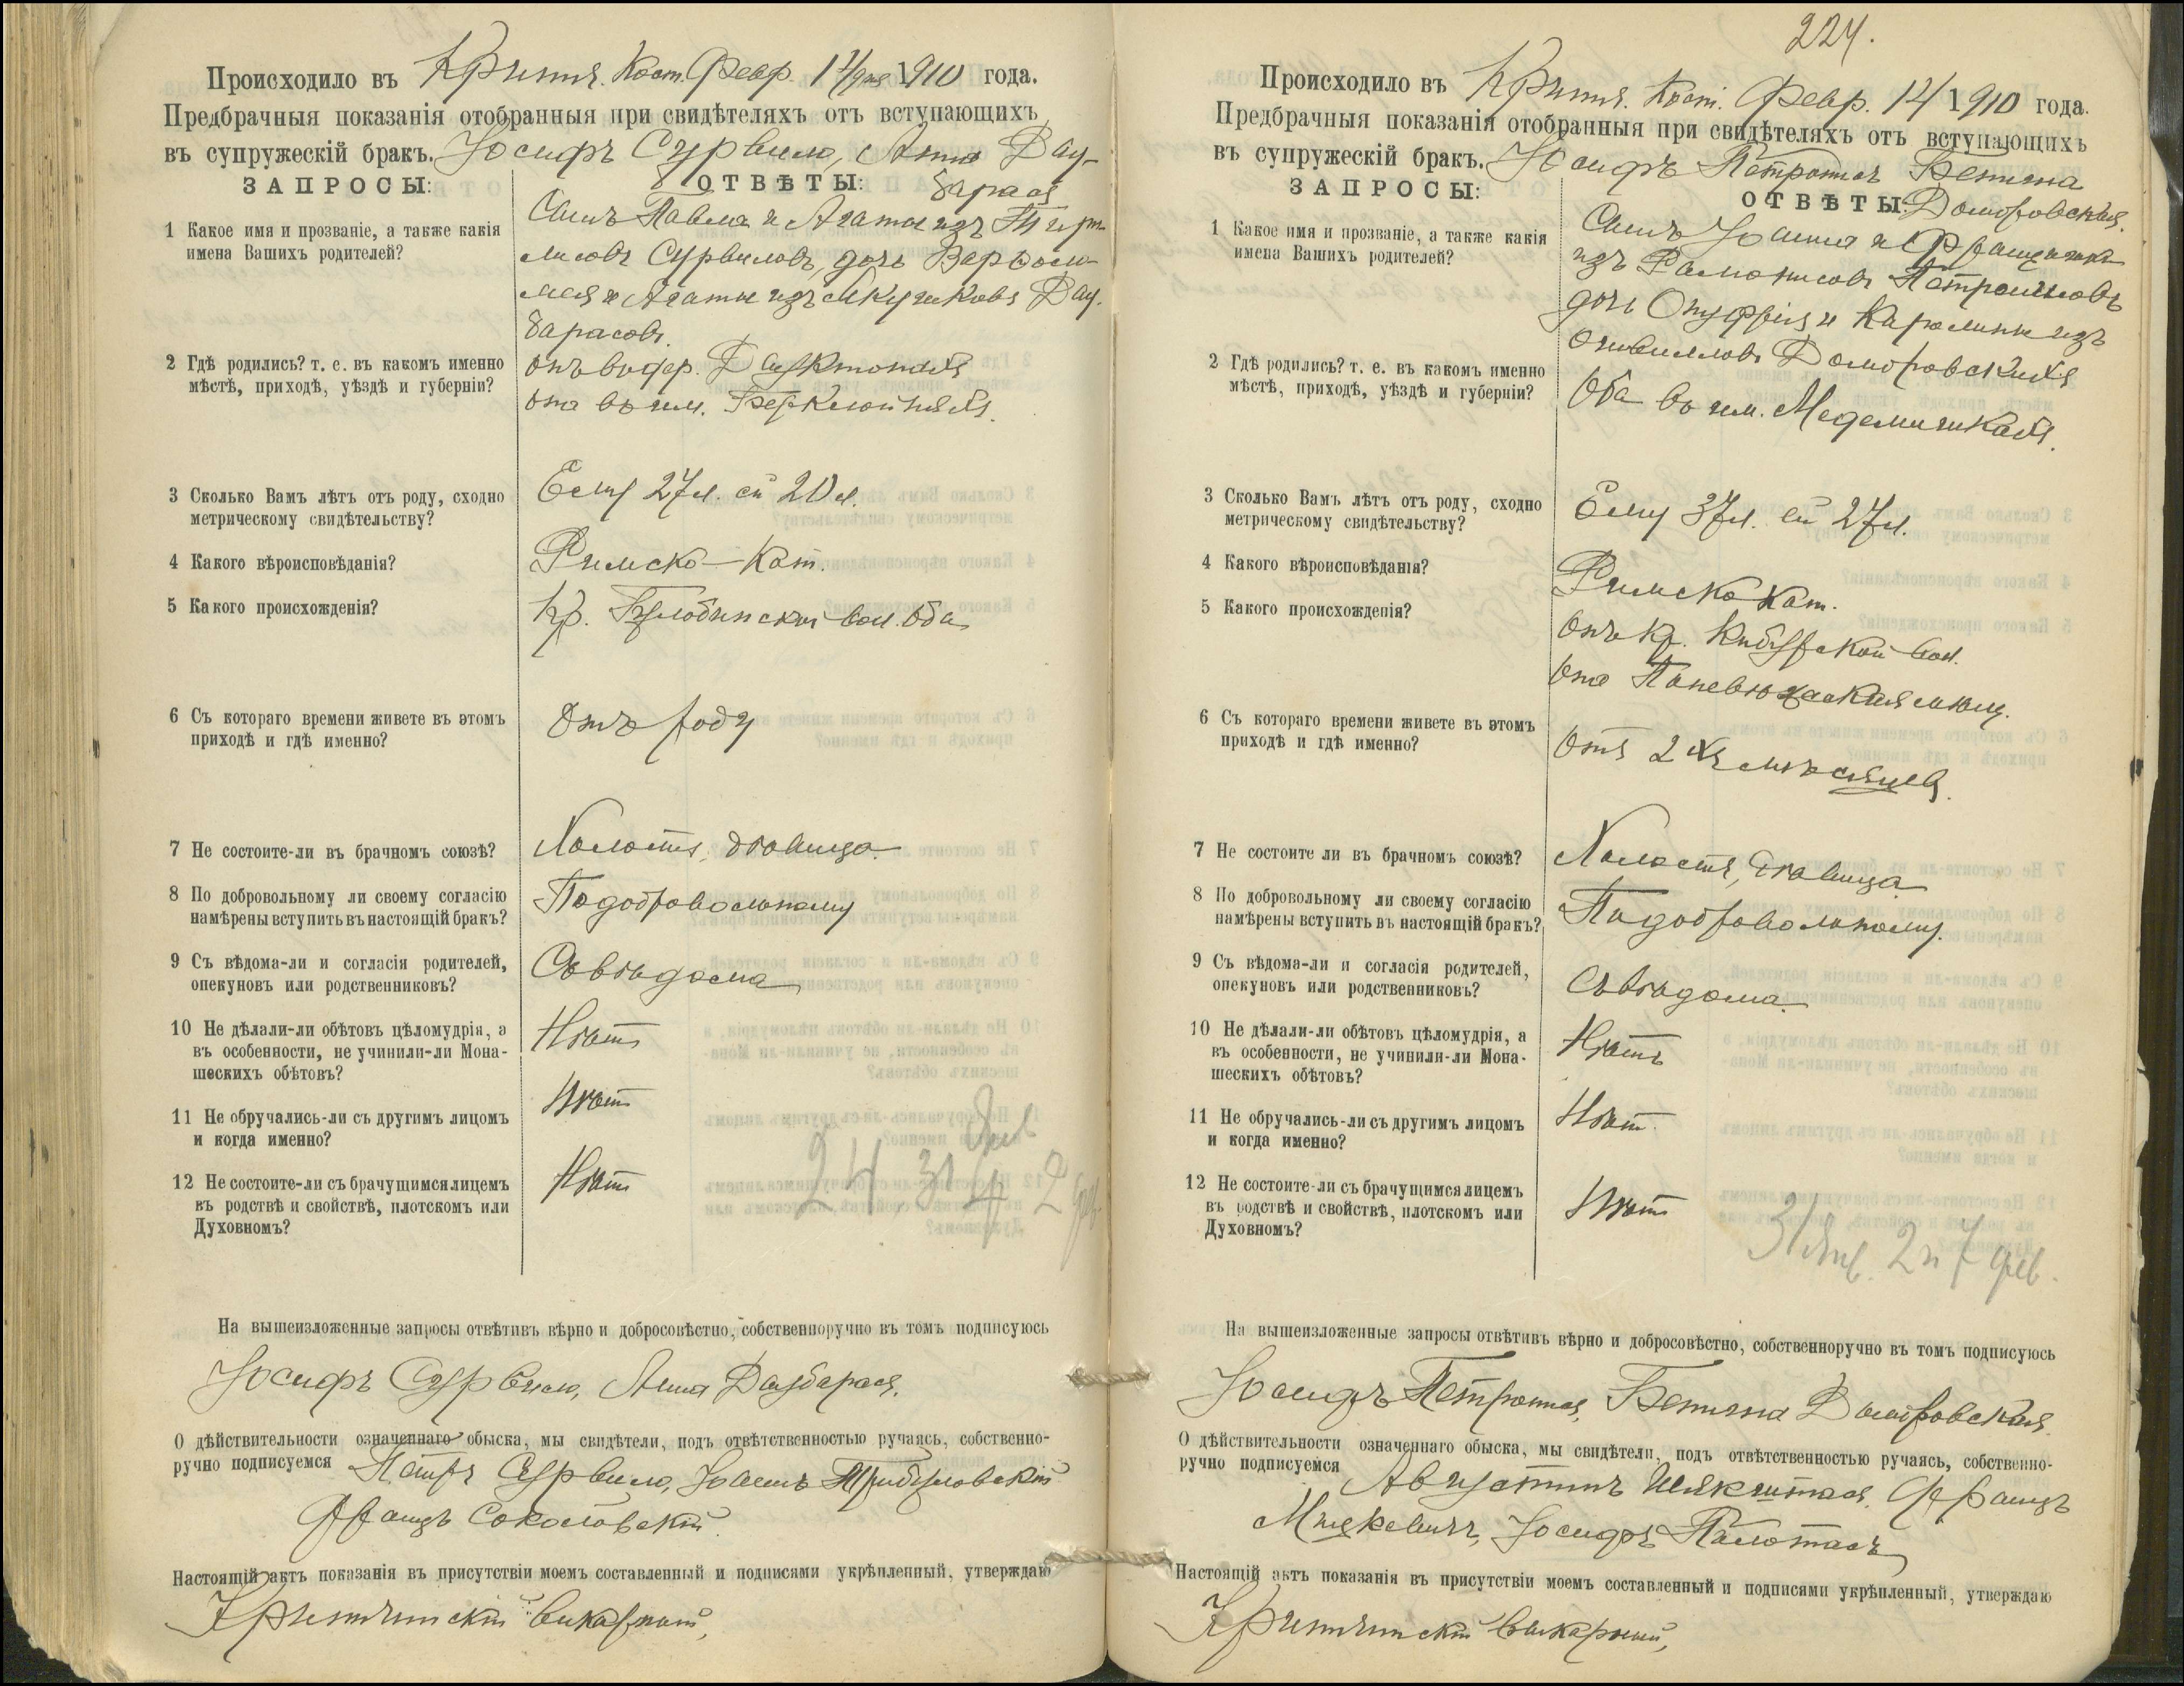 Происходило въ Кринч. Кост. Февр. 1910 года.
Предбрачныя показанія отобранныя при свидѣтеляхъ отъ вступающихъ
въ супружескій бракъ. Іосифъ Сурвило, Анна Дау-
ЗАПРОСЫ: ОТВѢТЫ: барася
1 Какое имя и прозваніе, а также какія
имена Вашихъ родителей?
Сынъ Павла и Агаты изъ
Сурвиловъ, дочь Варѳоло-
мея и Агаты изъ Микучисковъ Дау-
барасовъ.
2 Гдѣ родились? т. е. въ какомъ именно
мѣстѣ, приходѣ, уѣздѣ и губерніи?
онъ въ дер.
она въ им.
3 Сколько Вамъ лѣтъ отъ роду, сходно
метрическому свидѣтельству?
Ему 27 л. ей 20 л.
4 Какого вѣроисповѣданія?
Римско-Кат.
5 Какого происхожденія?
Кр. вол. оба
6 Съ котораго времени живете въ этомъ
приходѣ и гдѣ именно?
Отъ роду
7 Не состоите-ли въ брачномъ союзѣ?
Холостъ, дѣвица.
8 По добровольному ли своему согласію
намѣрены вступить въ настоящій бракъ?
По добровольному
9 Съ вѣдома-ли и согласія родителей,
опекуновъ или родственниковъ?
Съ вѣдома
10 Не дѣлали-ли обѣтовъ цѣломудрія, а
въ особенности, не учинили-ли Мона-
шескихъ обѣтовъ?
Нѣтъ
11 Не обручались-ли съ другимъ лицомъ
и когда именно?
Нѣтъ
12 Не состоите-ли съ брачущимся лицемъ
въ родствѣ и свойствѣ, плотскомъ или
Духовномъ?
Нѣтъ
24 31
На вышеизложенные запросы отвѣтивъ вѣрно и добросовѣстно, собственноручно въ томъ подписуюсь
Іосифъ Сурвило, Анна Даубарася.
О дѣйствительности означеннаго обыска, мы свидѣтели, подъ отвѣтственностью ручаясь, собственно-
ручно подписуемся Петръ Сурвило, Іоаннъ
Францъ Соколовскій
Настоящій актъ показанія въ присутствіи моемъ составленный и подписями укрѣпленный, утверждаю
Кринчинскій викарный,
224.
Происходило въ Кринч. Кост. Февр. 14 1910 года.
Предбрачныя показанія отобранныя при свидѣтеляхъ отъ вступающихъ
въ супружескій бракъ. Іосифъ Бенигна
ЗАПРОСЫ: ОТВѢТЫ: Домбровская.
1 Какое имя и прозваніе, а также какія
имена Вашихъ родителей?
Сынъ Іоанна и Францишки
изъ
дочь Онуфрія и Каролины изъ
Домбровскихъ
2 Гдѣ родились? т. е. въ какомъ именно
мѣстѣ, приходѣ, уѣздѣ и губерніи?
Оба въ им.
3 Сколько Вамъ лѣтъ отъ роду, сходно
метрическому свидѣтельству?
Ему 37 л. ей 27 л.
4 Какого вѣроисповѣданія?
Римско Кат.
5 Какого происхожденія?
Онъ кр. вол.
Она
6 Съ котораго времени живете въ этомъ
приходѣ и гдѣ именно?
Отъ 2хъ мѣсяцевъ.
7 Не состоите ли въ брачномъ союзѣ?
Холостъ, дѣвица
8 По добровольному ли своему согласію
намѣрены вступить въ настоящій бракъ?
По добровольному.
9 Съ вѣдома-ли и согласія родителей,
опекуновъ или родственниковъ?
Съ вѣдома.
10 Не дѣлали-ли обѣтовъ цѣломудрія, а
въ особенности, не учинили-ли Мона-
шескихъ обѣтовъ?
Нѣтъ
11 Не обручались-ли съ другимъ лицомъ
и когда именно?
Нѣтъ.
12 Не состоите-ли съ брачущимся лицемъ
въ родствѣ и свойствѣ, плотскомъ или
Духовномъ?
Нѣтъ
31 Янв. 2 и 7 фев.
На вышеизложенные запросы отвѣтивъ вѣрно и добросовѣстно, собственноручно въ томъ подписуюсь
Іосифъ Бенигна Домбровская.
О дѣйствительности означеннаго обыска, мы свидѣтели, подъ отвѣтственностью ручаясь, собственно-
ручно подписуемся Августинъ Францъ
Іосифъ
Настоящій актъ показанія въ присутствіи моемъ составленный и подписями укрѣпленный, утверждаю
Кринчинскій викарный,